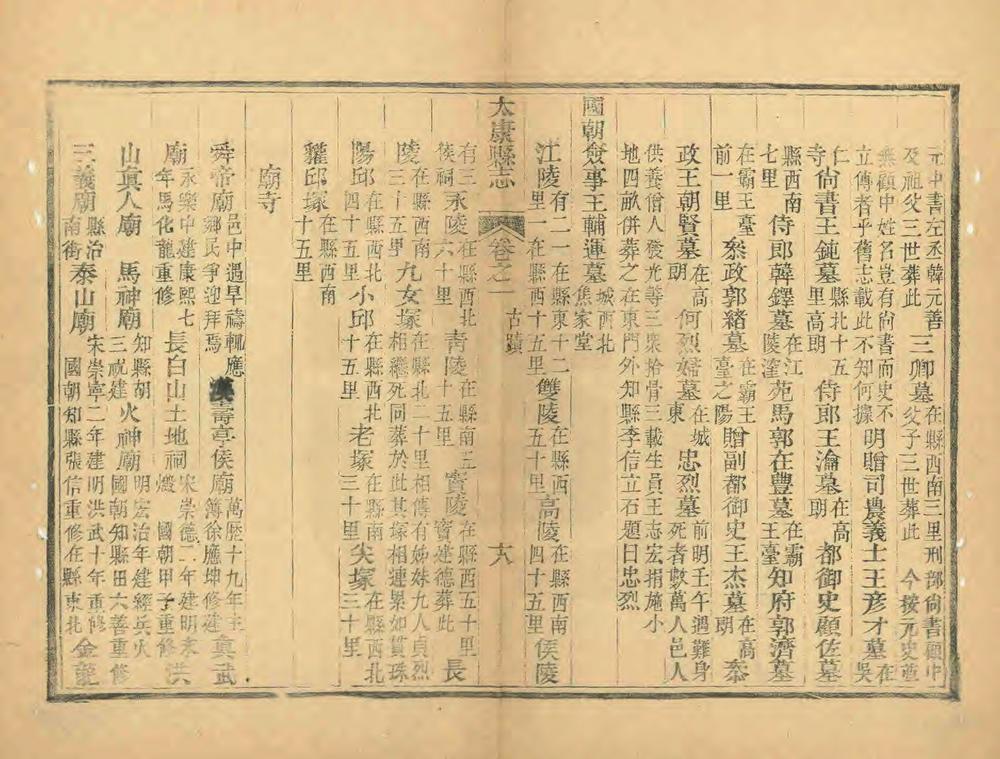 元中書左丞韓元善及祖父三世葬此 三卿墓 在縣西南三里刑部尚書顧中父子三世葬此 今按元史並
無顧中姓名豈有尚書而史不立傳者乎舊志載此不知何據 明贈司農義士王彥才墓 在吳
仁寺 尚書王鈍墓 縣北十五里高朗 侍郎王瀹墓 在高朗 都御史顧佐墓
縣西南七里 侍郎韓鐸墓 在江陵 苑馬郭在豐墓 在霸王臺 知府郭濟墓
在霸王臺前一里 叅政郭緒墓 在霸王臺之陽 贈副都御史王杰墓 在高朗 叅
政王朝賢墓 在高朗 何烈婦墓 在城東 忠烈墓 前明壬午遇難身死者數萬人邑人
供養僧人發光等三衆拾骨三載生員王志宏捐施小地四畝併葬之在東門外知縣李信立石題曰忠烈
國朝僉事王輔運墓 城西北焦家堂
江陵 有二一在縣東十二里一在縣西十五里 雙陵 在縣西五十里 高陵 在縣西南四十五里 侯陵
太康縣志 卷之一 古蹟 十八
有三侯祠 永陵 在縣西北六十里 青陵 在縣南三十五里 竇陵 在縣西五十里竇建德葬此 長
陵 在縣西南三十五里 九女塚 在縣北二十里相傳有姊妹九人貞烈相繼死同葬於此其塚相連累如貫珠
陽邱 在縣西北四十五里 小邱 在縣西北十五里 老塚 在縣南三十里 尖塚 在縣西北三十里
貛邱塚 在縣西南十五里
廟寺
舜帝廟 邑中遇旱禱輒應鄉民爭迎拜焉 漢壽亭侯廟 萬歷十九年主簿徐應坤修建 真武
廟 永樂中建康熙七年馬化龍重修 長白山土地祠 宋崇德二年建明末燬 國朝甲子重修 洪
山真人廟 馬神廟 知縣胡三祝建 火神廟 明宏治年建經兵火國朝知縣田六善重修
三義廟 縣治南街 泰山廟 宋崇寧二年建明洪武十年重修國朝知縣張信重修在縣東北 金龍